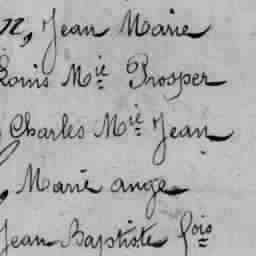 n, Jean Marie
Louis Mie Prosper
Charles Mie Jean
, Marie ange
Jean Baptiste fois